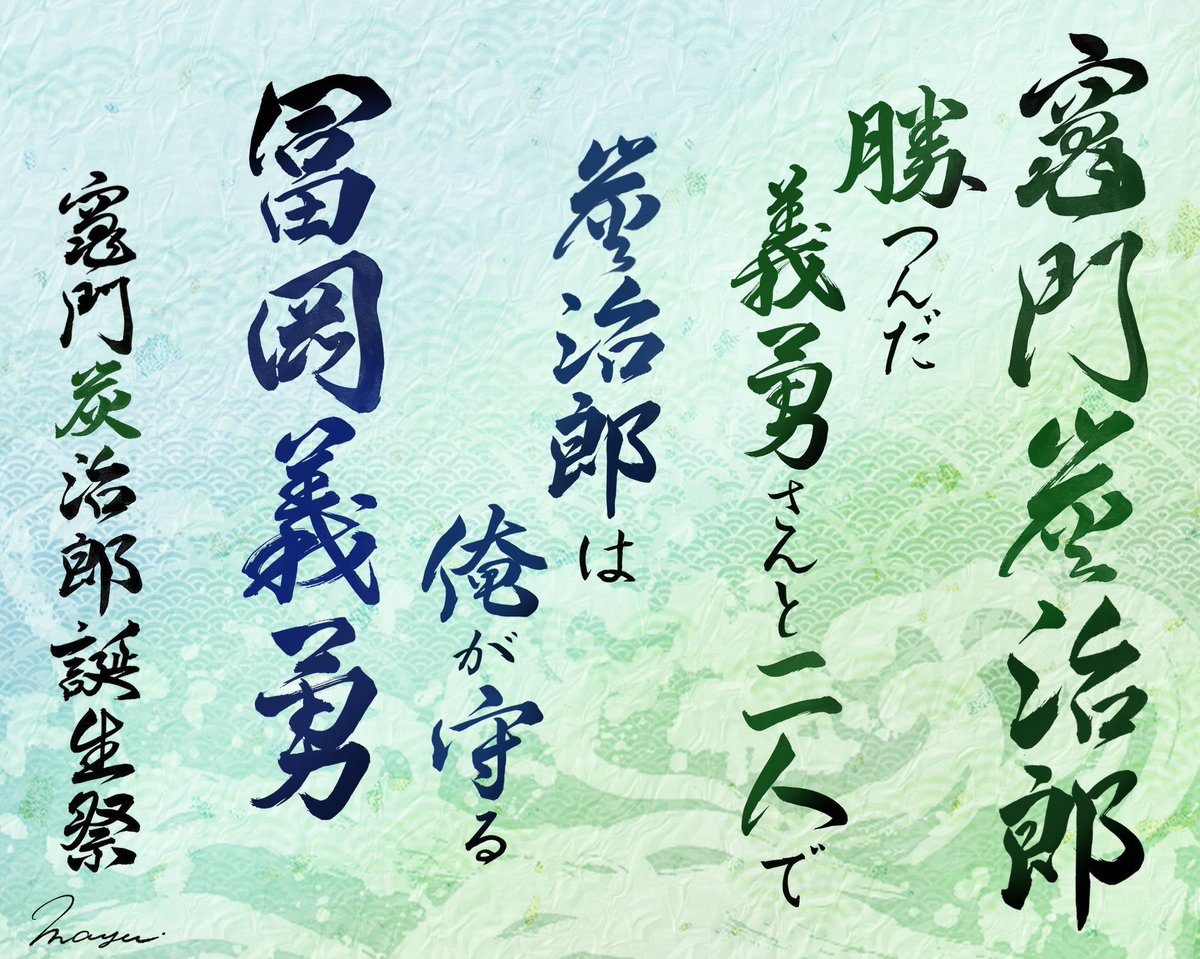 竈門炭治郎
勝つんだ
義勇さんと二人で
炭治郎は
俺が守る
冨岡義勇
竈門炭治郎誕生祭
mayu